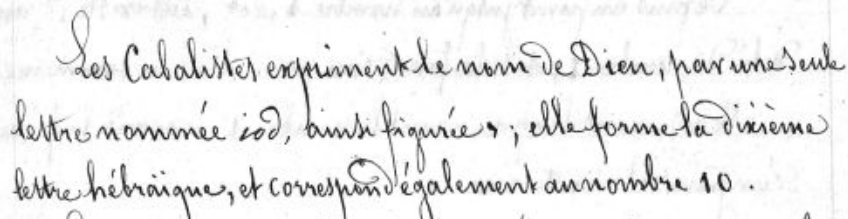 Les Cabalistes expriment le nom de Dieu, par une seule
lettre nommée iod, ainsi figurée י; elle forme la dixième
lettre hébraïque, et correspond également au nombre 10.